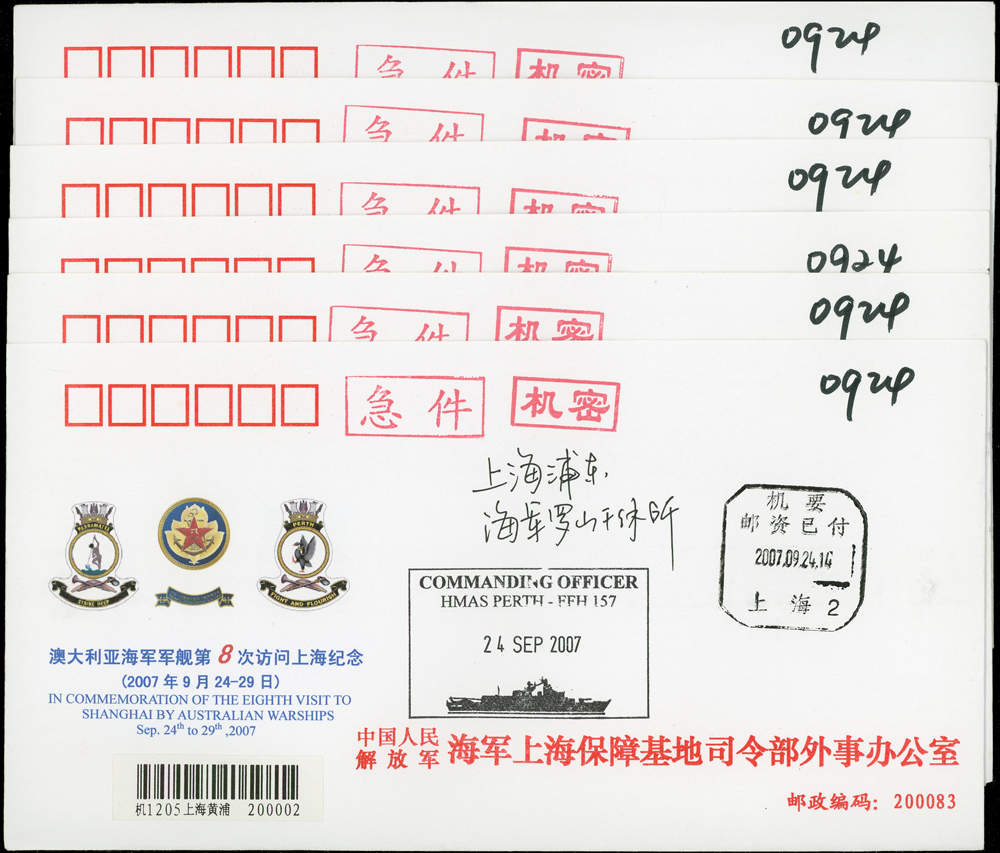 0924
急件 机密
0924
急件 机密
0924
急件 机密
0924
急件 机密
0924
急件 机密
0924
急件 机密
上海浦东
海军罗山干休所
机要
邮资已付
2007.09.24.16
上海 2
PARRAMATTA
STRIKE DEEP
PERTH
FIGHT AND FLOURISH
COMMANDING OFFICER
HMAS PERTH - FFH 157
24 SEP 2007
澳大利亚海军军舰第8次访问上海纪念
(2007年9月24-29日)
IN COMMEMORATION OF THE EIGHTH VISIT TO
SHANGHAI BY AUSTRALIAN WARSHIPS
Sep. 24th to 29th ,2007
中国人民
解放军 海军上海保障基地司令部外事办公室
机1205上海黄浦 200002
邮政编码：200083